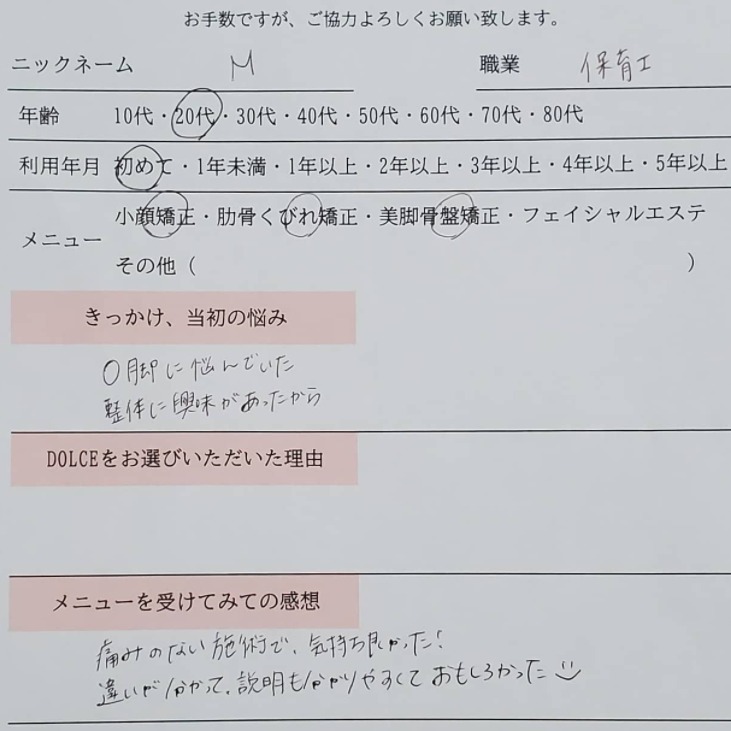 お手数ですが、ご協力よろしくお願い致します。
ニックネーム M 職業 保育士
年齢 10代・20代・30代・40代・50代・60代・70代・80代
利用年月 初めて・1年未満・1年以上・2年以上・3年以上・4年以上・5年以上
小顔矯正・肋骨くびれ矯正・美脚骨盤矯正・フェイシャルエステ
メニュー
その他（ ）
きっかけ、当初の悩み
O脚に悩んでいた
整体に興味があったから
DOLCEをお選びいただいた理由
メニューを受けてみての感想
痛みのない施術で、気持ち良かった！
違いが分かって、説明も分かりやすくておもしろかった